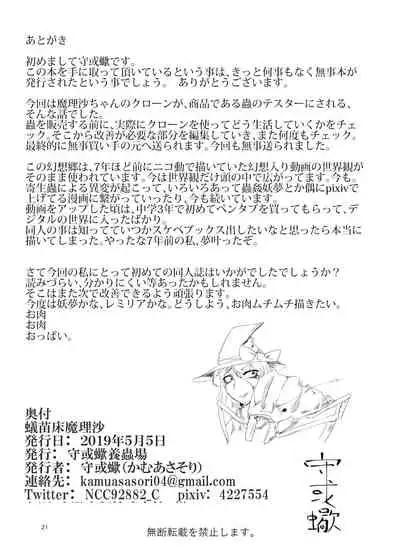 あとがき
初めまして守或蠍です。
この本を手に取って頂いているという事は、きっと何事もなく無事本が
発行されたという事でしょう。 ありがとうございます。
今回は魔理沙ちゃんのクローンが、商品である蟲のテスターにされる、
そんな話でした。
蟲を販売する前に、実際にクローンを使ってどう生活していくかをチェッ
ク。そこから改善が必要な部分を編集していき、また何度もチェック。
最終的に無事買い手の元へ送られます。今回も無事送られました。
この幻想郷は、7年ほど前にニコ動で描いていた幻想入り動画の世界観が
そのまま使われています。今は世界観だけ頭の中で広がってます。今も。
寄生蟲による異変が起こって、いろいろあって蟲姦妖夢とか偶にpixivで
上げてる漫画に繋がっていったり、今も続いています。
動画をアップした頃は、中学3年で初めてペンタブを買ってもらって、デ
ジタルの世界に入ったばかり。
同人の事は知ってていつかスケベブックス出したいなと思ったら本当に
描いてしまった。やったな7年前の私、夢叶ったぞ。
さて今回の私にとって初めての同人誌はいかがでしたでしょうか?
読みづらい、分かりにくい等あったかもしれません。
そこはまた次で改善できるよう頑張ります。
今度は妖夢かな、レミリアかな。どうしよう、お肉ムチムチ描きたい。
お肉
お肉
おっぱい。
奥付
蟻苗床魔理沙
発行日: 2019年5月5日
発行: 守或蠍養蟲場
発行者: 守或蠍(かむあさそり)
連絡先: kamuasasori04@gmail.com
Twitter: NCC92882_C pixiv: 4227554
守或蠍
21
無断転載を禁止します。